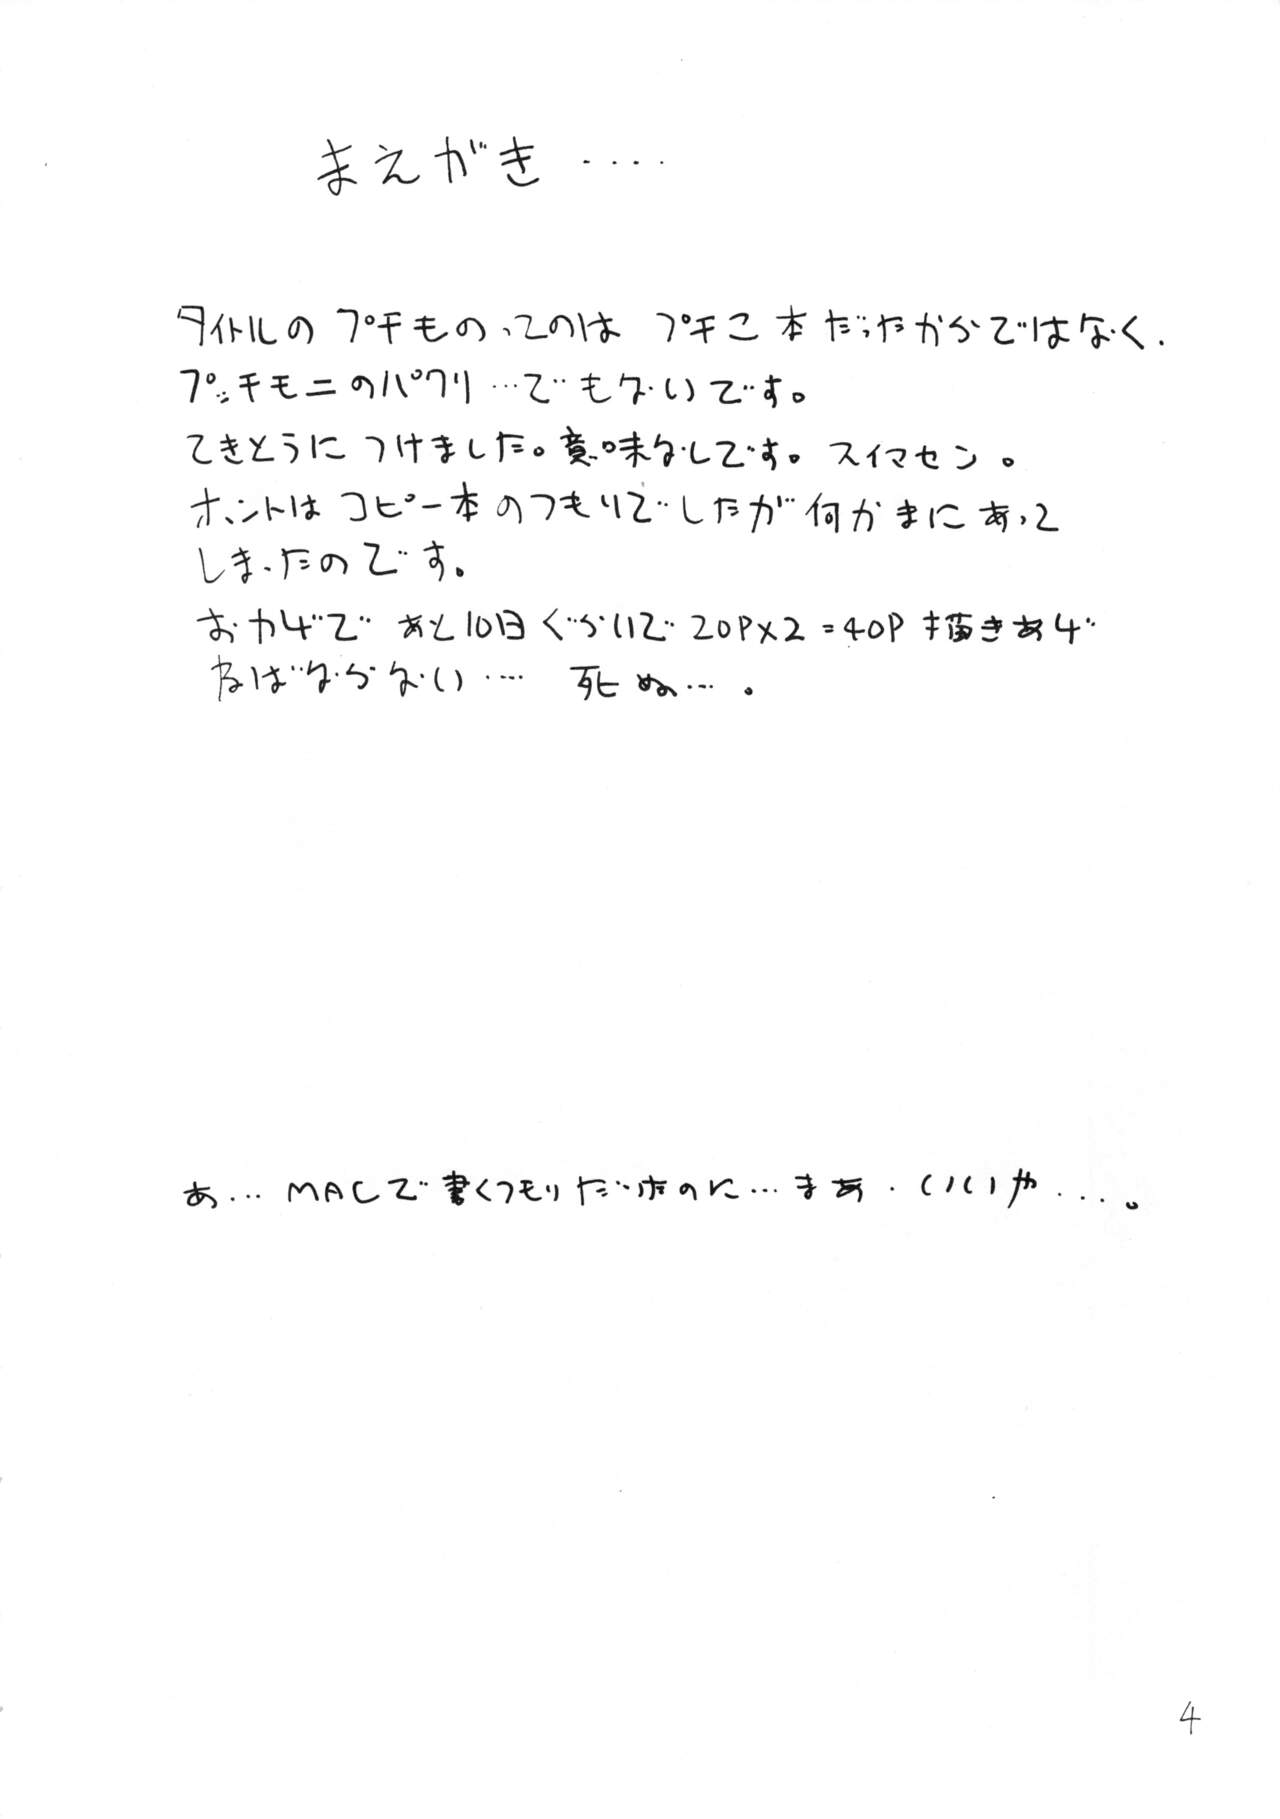 まえがき‥‥
タイトルの プチものってのは プチこ本だったからではなく、
プッチモニのパクリ…でもないです。
てきとうにつけました。意味なしです。スイマセン。
ホントはコピー本のつもりでしたが何かまにあって
しまったのです。
おかげで あと10日ぐらいで 20P×2=40P 描きあげ
ねばならない‥‥ 死ぬ…。
あ…MACで書くつもりだったのに…まあ、いいや‥‥。
4